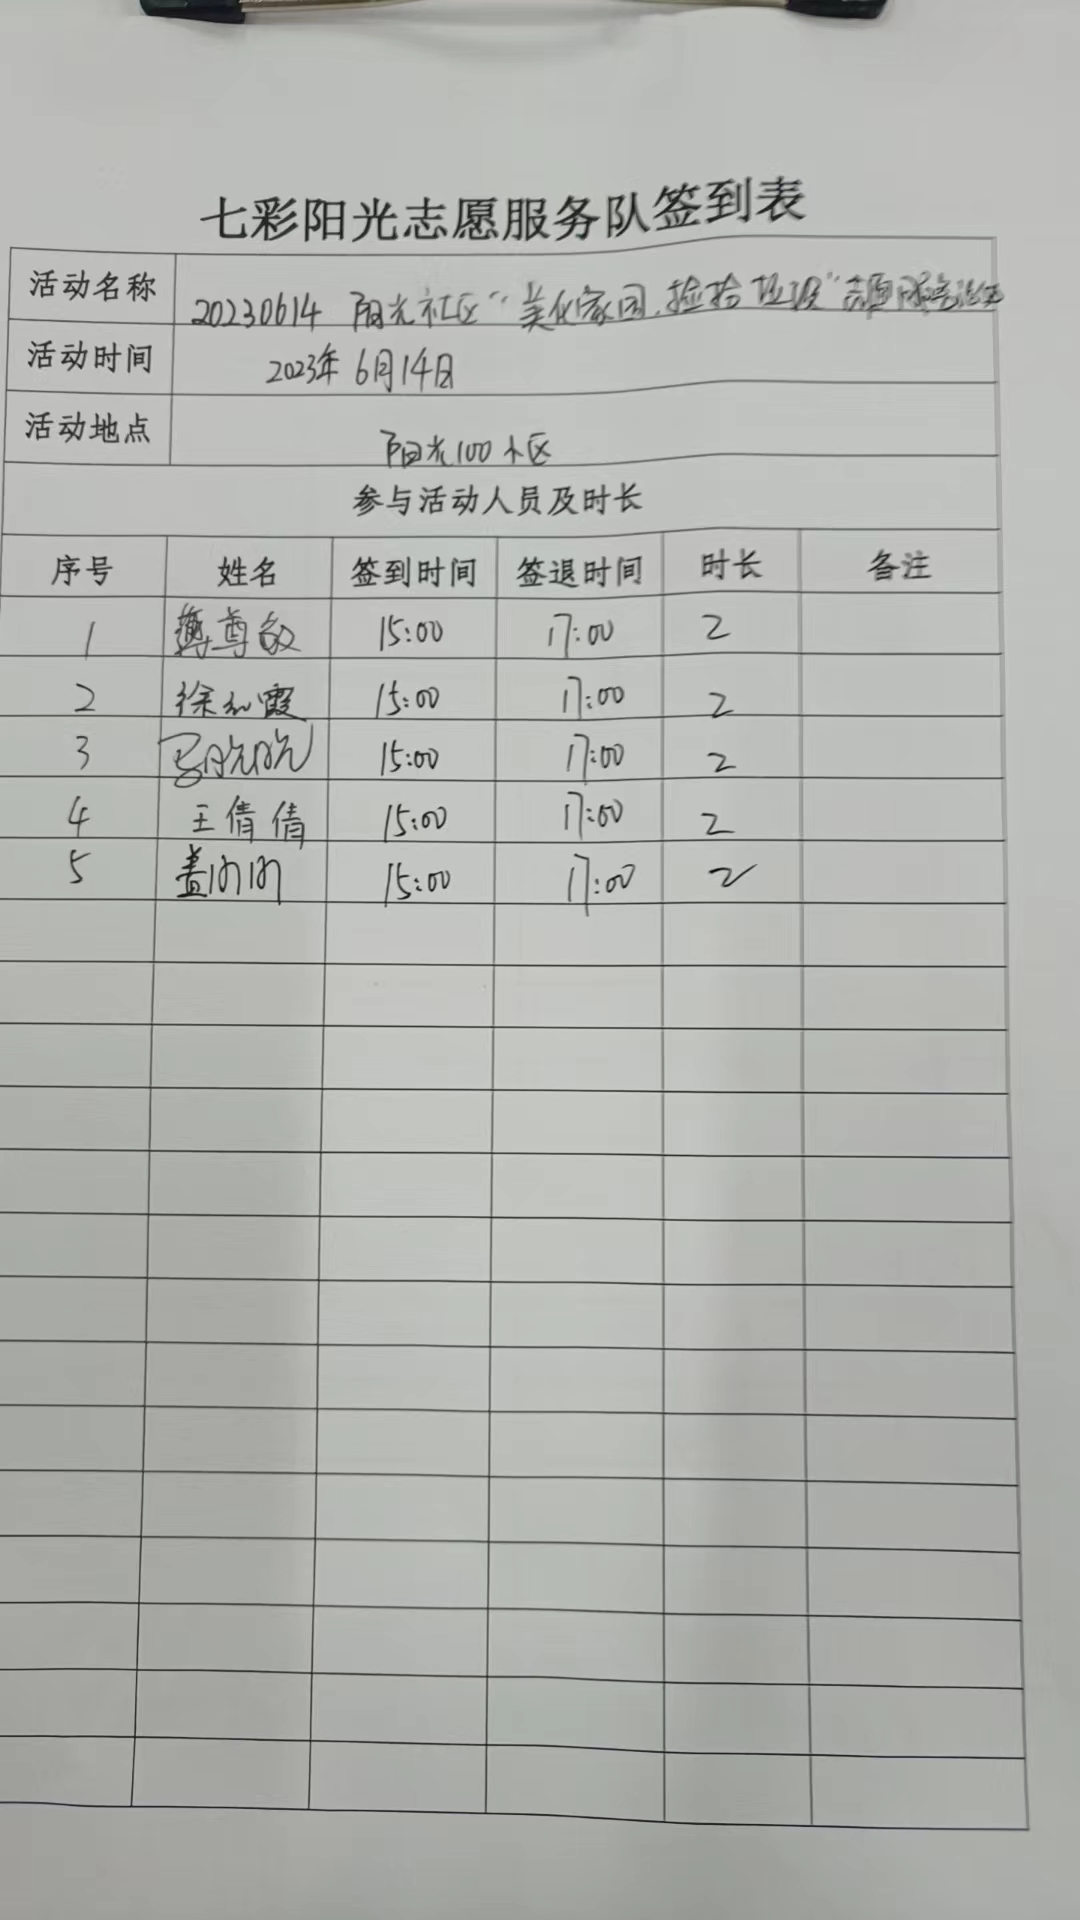 七彩阳光志愿服务队签到表
活动名称 20230614 阳光社区“美化家园,捡拾垃圾”志愿服务活动
活动时间 2023年6月14日
活动地点 阳光100小区
参与活动人员及时长
序号 姓名 签到时间 签退时间 时长 备注
1 尊敬 15:00 17:00 2
2 徐 霞 15:00 17:00 2
3 15:00 17:00 2
4 王倩倩 15:00 17:00 2
5 盖 15:00 17:00 2